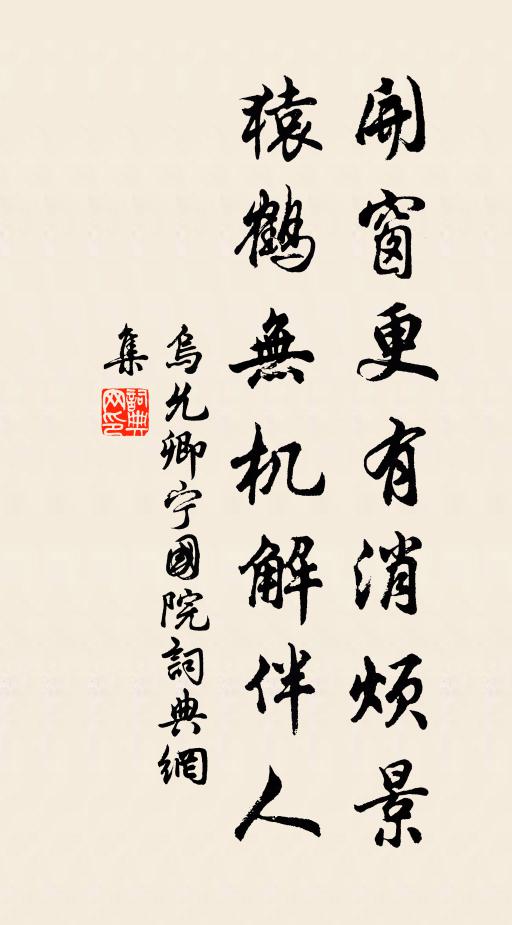 開窗更有消煩景
猿鶴無机解伴人
烏允卿宁國院詞典網
集
詞典
网印